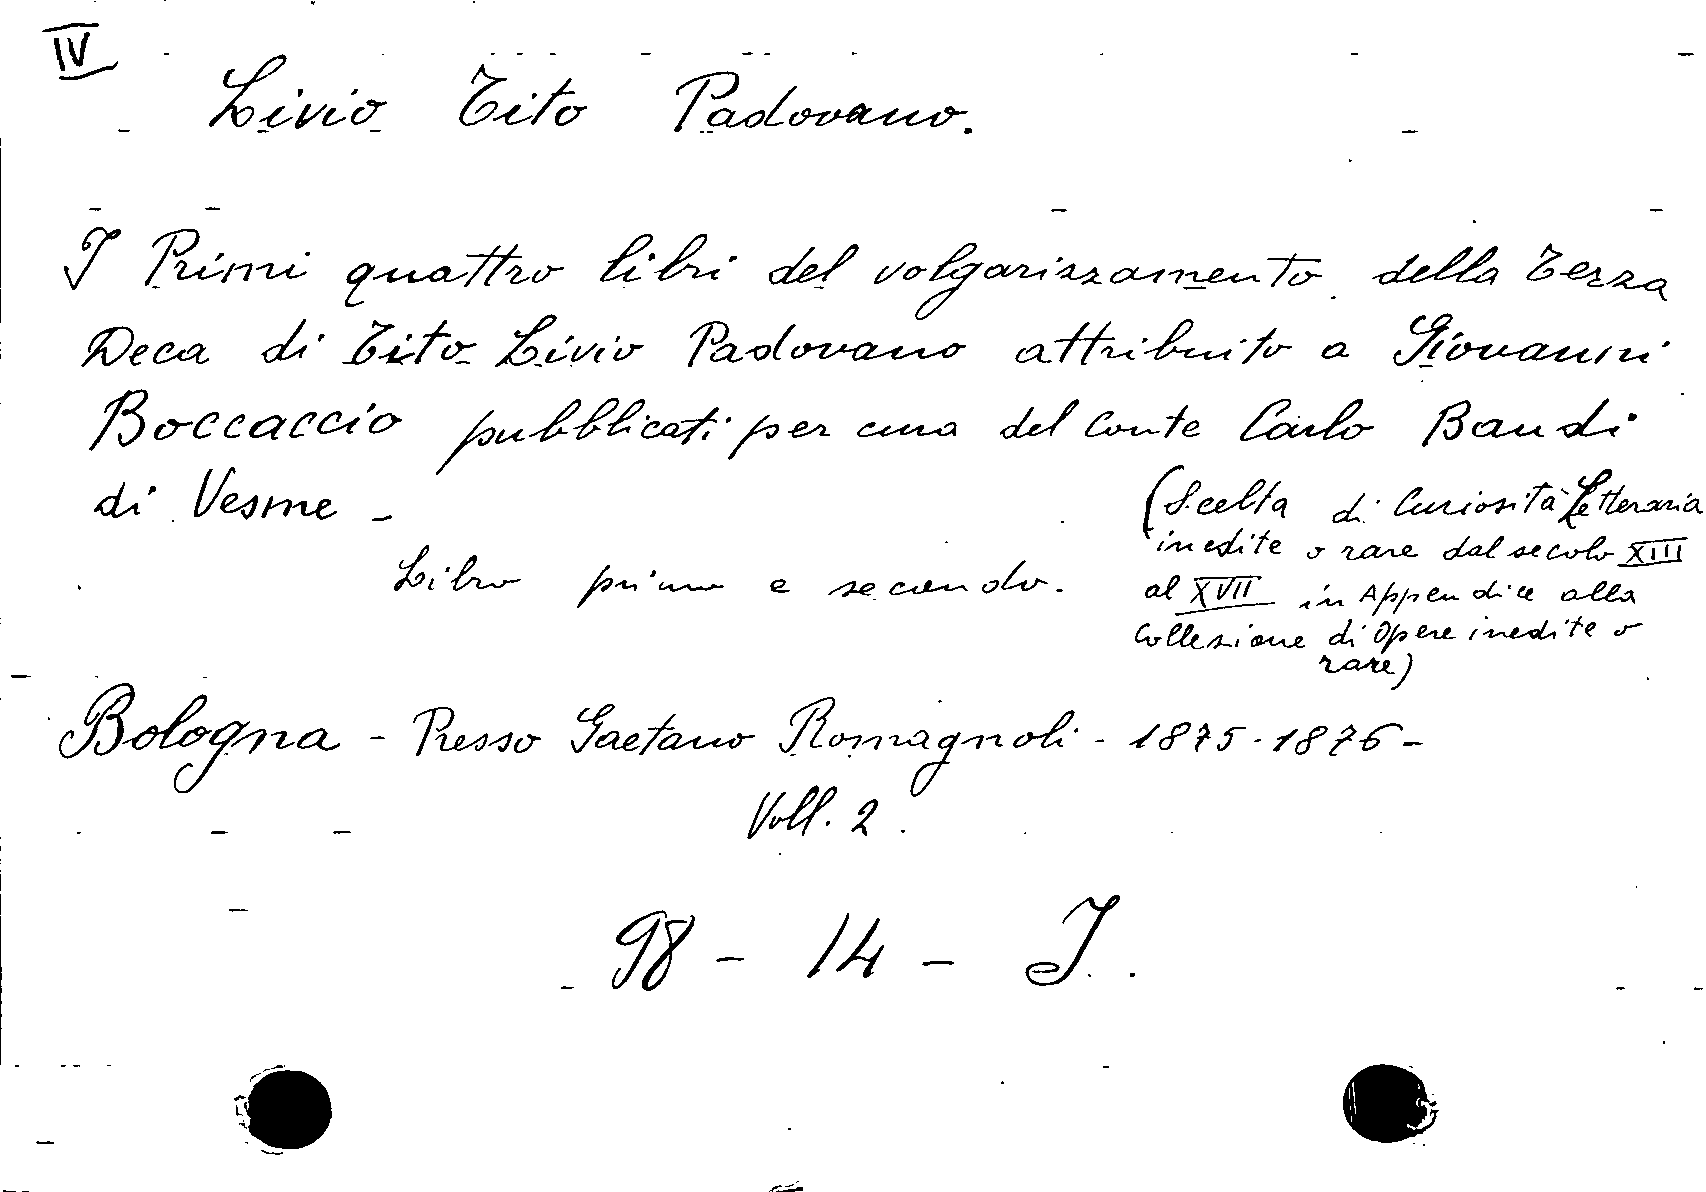 IV
Livio Tito Padovano.
I Primi quattro libri del volgarizzamento della Terza
Deca di Tito Livio Padovano attribuito a Giovanni
Boccaccio pubblicati per cura del Conte Carlo Baudi
di Vesme -
(Scelta di Curiosità Letteraria
inedite o rare dal secolo XIII
al XVII in Appendice alla
Collezione di Opere inedite o
rare)
Libro primo e secondo.
Bologna - Presso Gaetano Romagnoli - 1875-1876 -
Voll. 2.
98 - 14 - I.